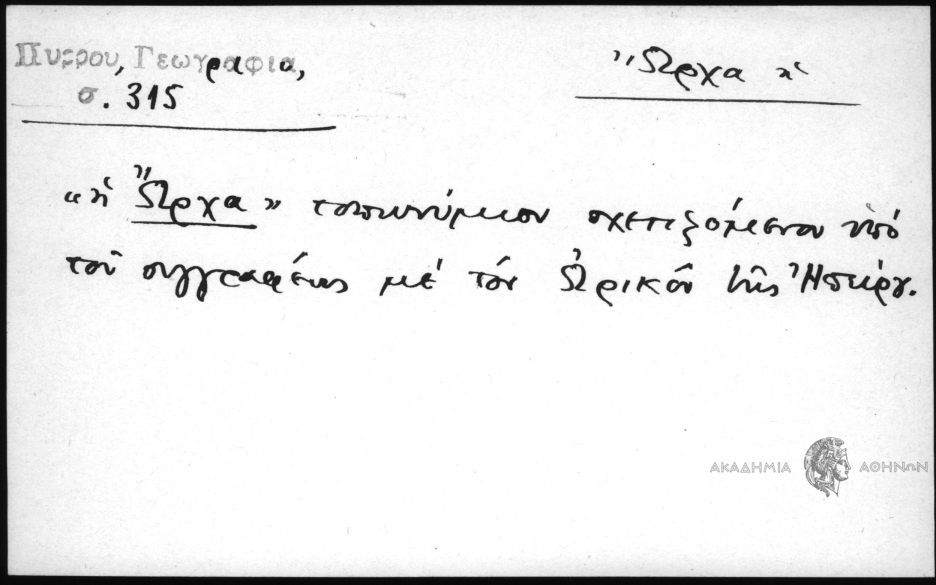 Πυρρου, Γεωγραφια,
σ. 315
Ὤρχα ἡ
«ἡ Ὤρχα» τοπωνύμιον σχετιζόμενον ὑπό
τοῦ συγγραφέως μέ τόν Ὠρικόν τῆς Ἠπείρου.
ΑΚΑΔΗΜΙΑ ΑΘΗΝΩΝ